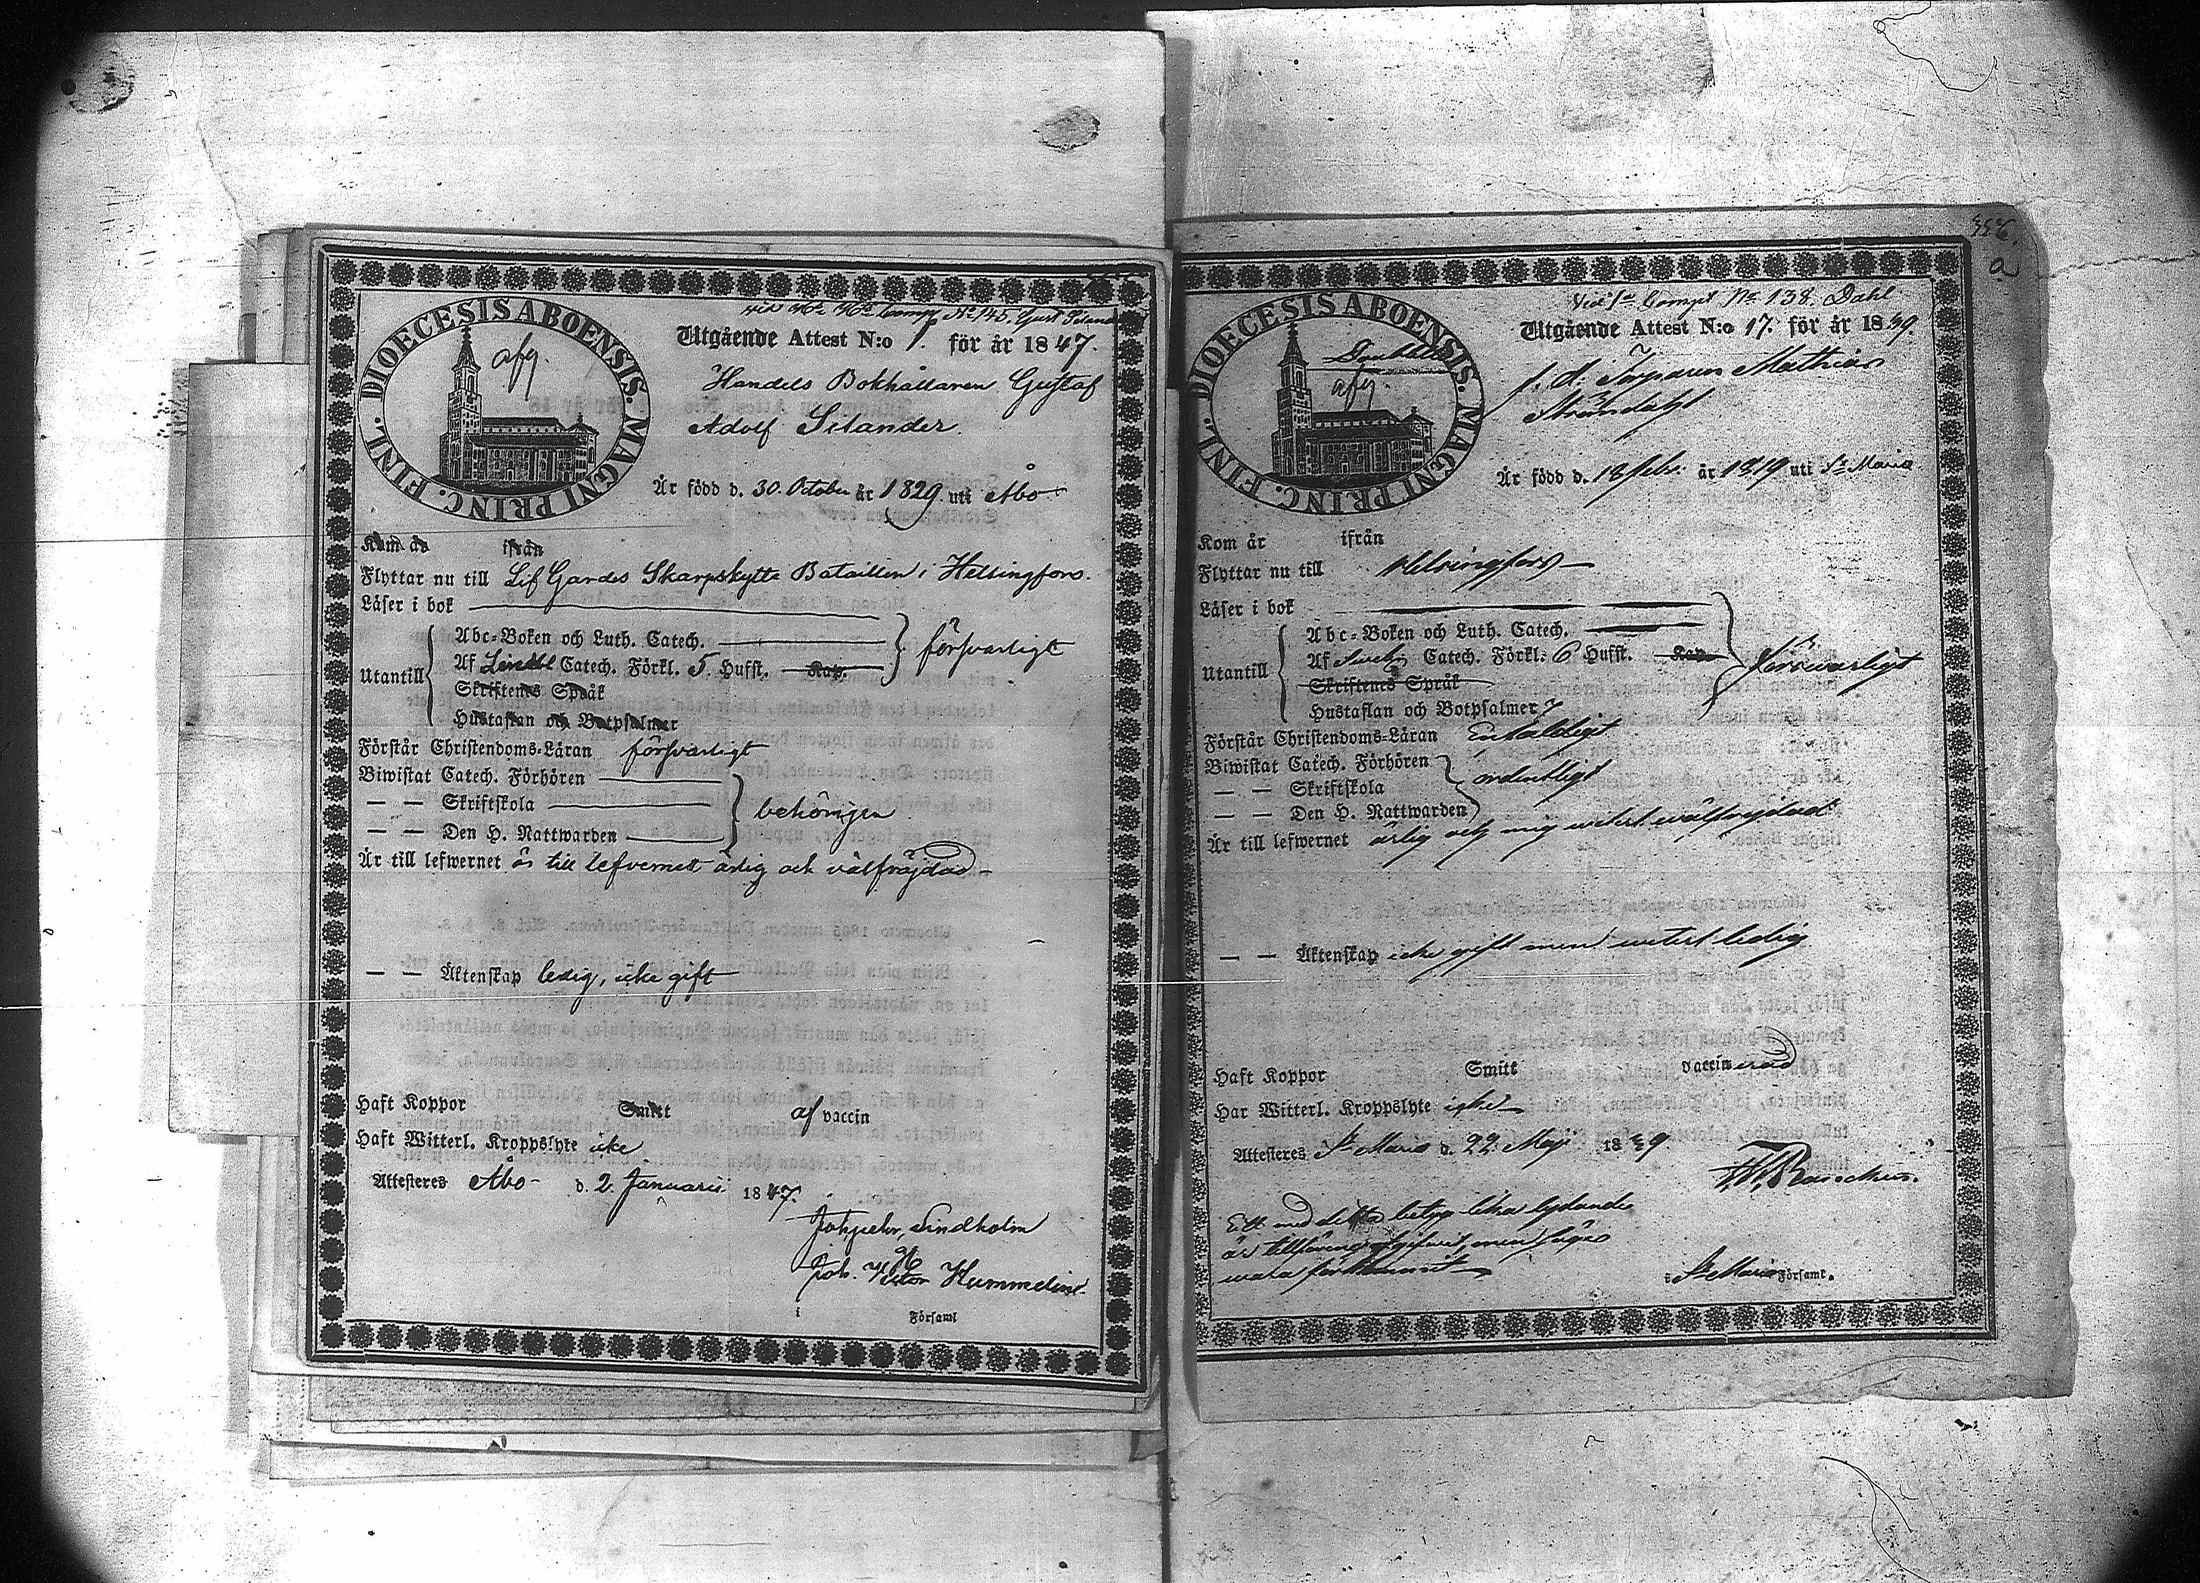 DIOECESIS ABOENSIS. MAGNI PRINC. FINL.
afg.
Comp. No 145. Gust Silander
Utgående Attest N:o 1. för år 1847.
Handels Bokhållaren Gustaf
Adolf Silander.
Är född d. 30. October år 1829. uti Åbo
Kom år ifrån
Flyttar nu till Lif Gardes Skarpskytte Bataillon i Helsingfors.
Läser i bok
Abc-Boken och Luth. Catech.
Utantill
Af Catech. Förkl. 5. Hufst. Kap.
försvarligt
Skriftenes Språk
Hustaflan och Botpsalmer
Förstår Christendoms-Läran försvarligt
Biwistat Catech. Förhören
— — Skriftskola
behörigen
— — Den H. Nattwarden
Är till lefwernet är till lefvernet ärlig och välfräjdad
— — Äktenskap ledig, icke gift
Haft Koppor Smitt af vaccin
Haft Witterl. Kroppslyte icke
Attesteres Åbo d. 2. Januarii 1847.
Lindholm
Joh. Victor Hummelin
i Församl
a
DIOECESIS ABOENSIS. MAGNI PRINC. FINL.
afg.
Compt No 138. Dahl
Utgående Attest N:o 17. för år 1849
f. d. Torparen Mathias
Strandahl
Är född d. 18 Febr. år 1819 uti St Maria
Kom år ifrån
Flyttar nu till Helsingfors
Läser i bok
Abc-Boken och Luth. Catech.
Utantill
Af Catech. Förkl. 6 Hufst. Kap.
försvarligt
Skriftenes Språk
Hustaflan och Botpsalmer 7
Förstår Christendoms-Läran Enfaldigt
Biwistat Catech. Förhören
— — Skriftskola
ordentligt
— — Den H. Nattwarden
Är till lefwernet ärlig och mig veterl. wälfreydad
— — Äktenskap icke gift men veterl. ledig
Haft Koppor Smitt vaccinerad
Har Witterl. Kroppslyte icke
Attesteres St Maria d. 22 Maji 1849
Ett med detta betyg lika lydande
är tillförene afgifwit, men säges
wara förkommit
i St Maria Församl.